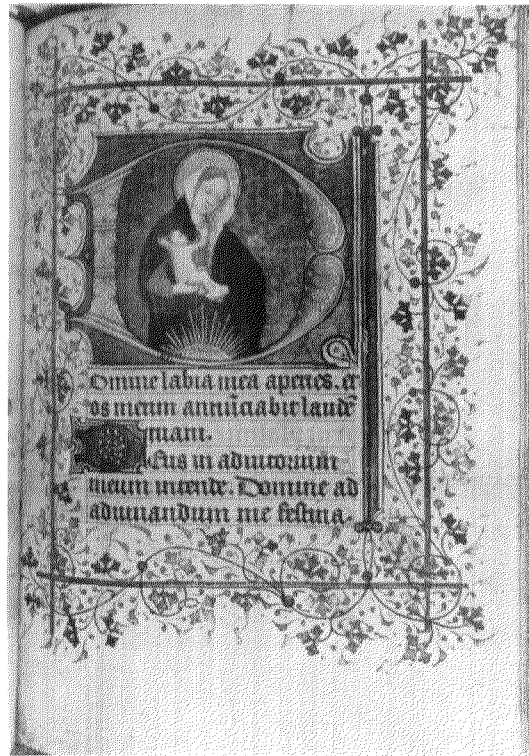 Domine labia mea aperies. et
os meum annūciabit laudē
tuam.
Deus in adiutorium
meum intende. Domine ad
adiuuandum me festina.